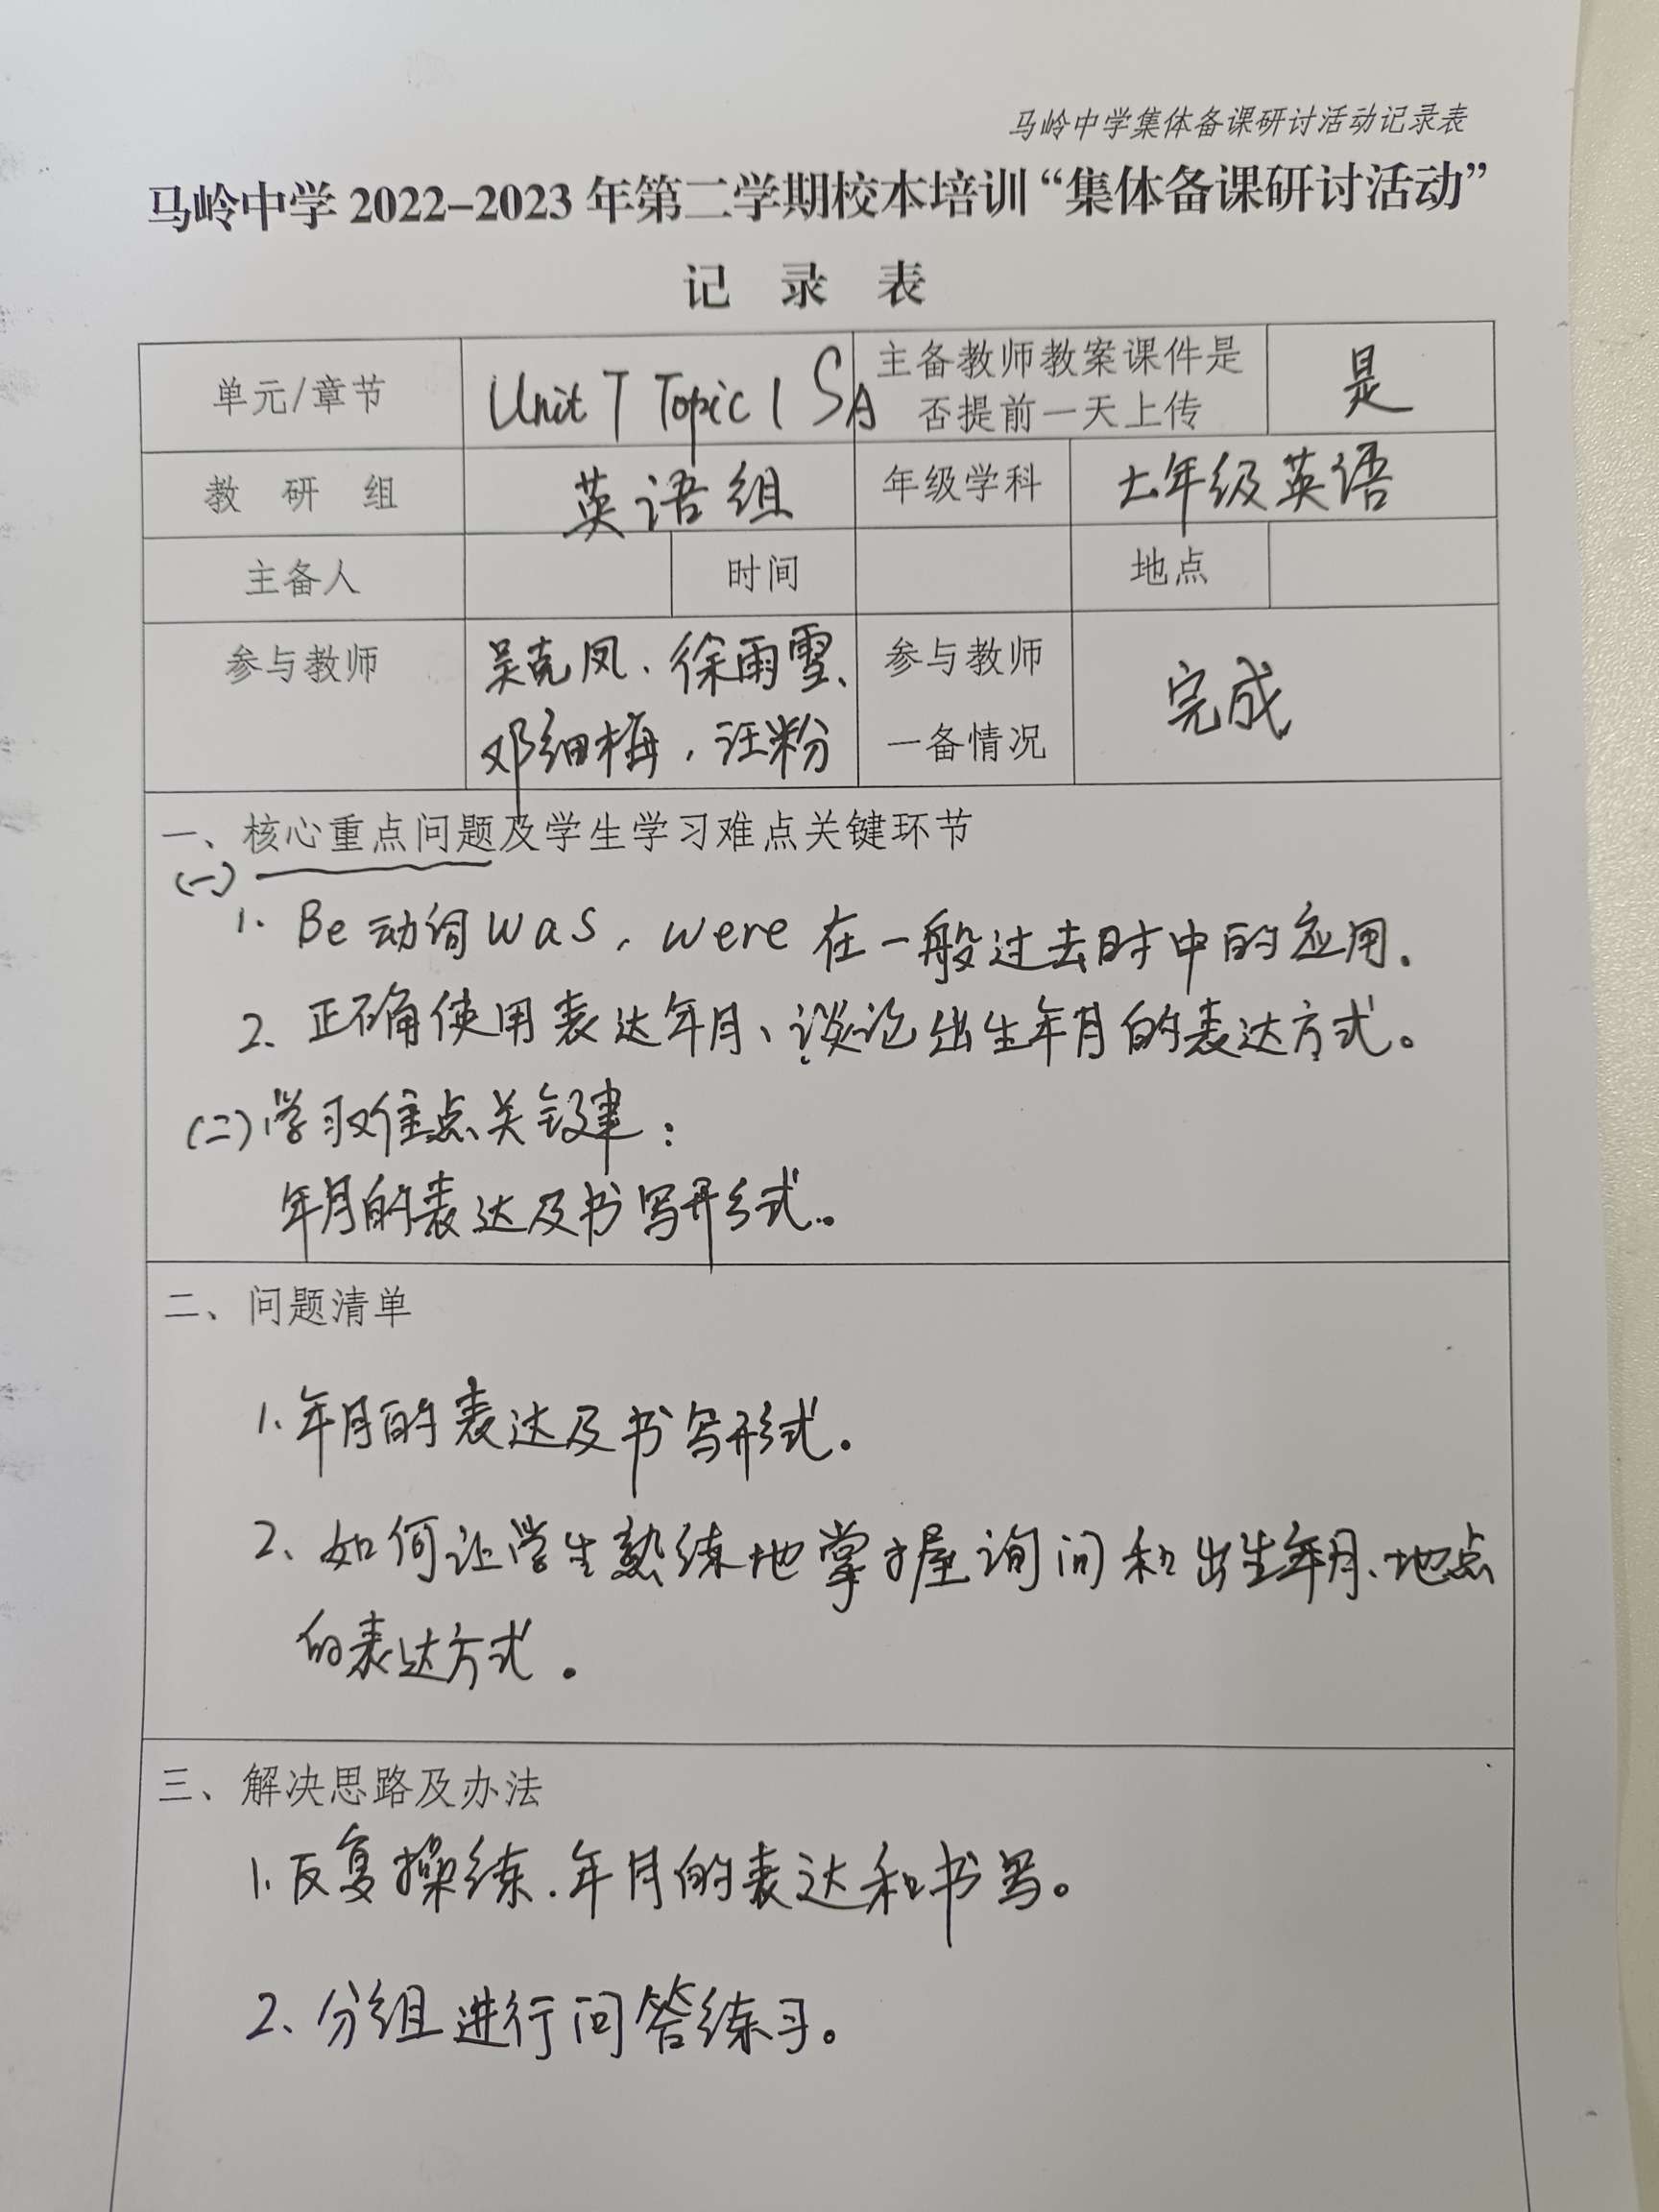 马岭中学集体备课研讨活动记录表
马岭中学 2022-2023 年第二学期校本培训“集体备课研讨活动”
记 录 表
单元/章节 Unit 7 Topic 1 SA 主备教师教案课件是否提前一天上传 是
教 研 组 英语组 年级学科 七年级英语
主备人 时间 地点
参与教师 吴克凤、徐雨雪、 参与教师 完成
邓细梅,汪粉 一备情况
一、核心重点问题及学生学习难点关键环节
(一)
1. Be动词was, were 在一般过去时中的应用.
2. 正确使用表达年月、谈论出生年月的表达方式。
(二)学习难点关键:
年月的表达及书写形式。
二、问题清单
1. 年月的表达及书写形式。
2、如何让学生熟练地掌握询问和出生年月、地点
的表达方式。
三、解决思路及办法
1. 反复操练.年月的表达和书写。
2、分组进行问答练习。